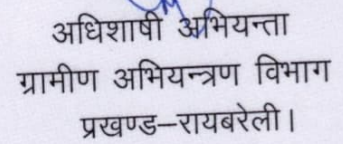 अधिशाषी अभियन्ता
ग्रामीण अभियन्त्रण विभाग
प्रखण्ड–रायबरेली।